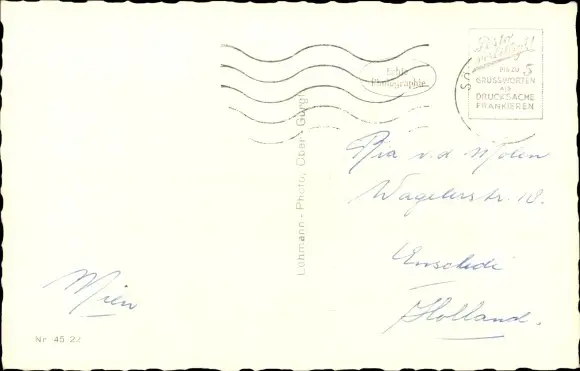 Porto
5
BIS ZU
GRUSSWORTEN
ALS
DRUCKSACHE
FRANKIEREN
Echte
Photographie
Lohmann - Photo, Ober - Gurgl
Ria v.d. Molen
Wagelerstr. 18.
Enschede
Holland.
Mien
Nr. 45 22